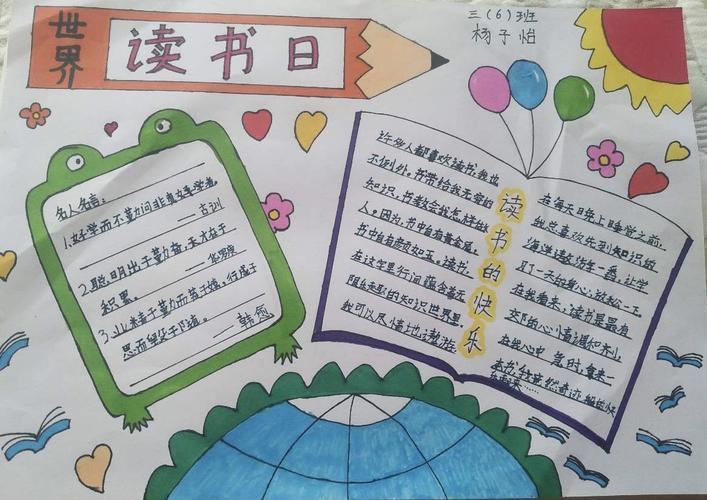 世界
读书日
三(6)班
杨子怡
名人名言:
1.好学而不勤问非真好学者。
——古训
2.聪明出于勤奋,天才在于
积累。
——华罗庚
3.业精于勤而荒于嬉,行成于
思而毁于随。
——韩愈
读书的快乐
许多人都喜欢读书,我也
不例外。书带给我无穷的
知识,书教会我怎样做
人。因为,书中自有黄金屋,
书中自有颜如玉。读书,
在这字里行间蕴含着无
限的知识世界里,
我可以尽情地遨游
在每天晚上睡觉之前,
我总喜欢先到知识的
海洋遨游一番,让学
了一天的身心放松一下。
在我看来,读书是最有
的心情调和剂。
在我心中 急时,拿来一
本书,我竟然奇迹 快